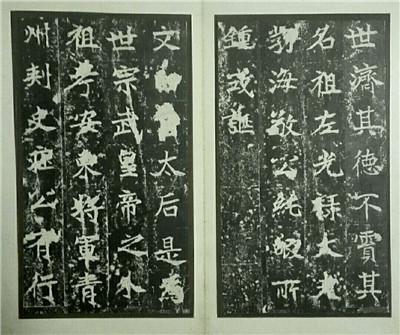 世濟其德不霣其
名祖左光祿大夫
勃海敬公純嘏所
鍾誕
文太后是為
世宗武皇帝之外
祖考安東將軍青
州刺史莊公有行